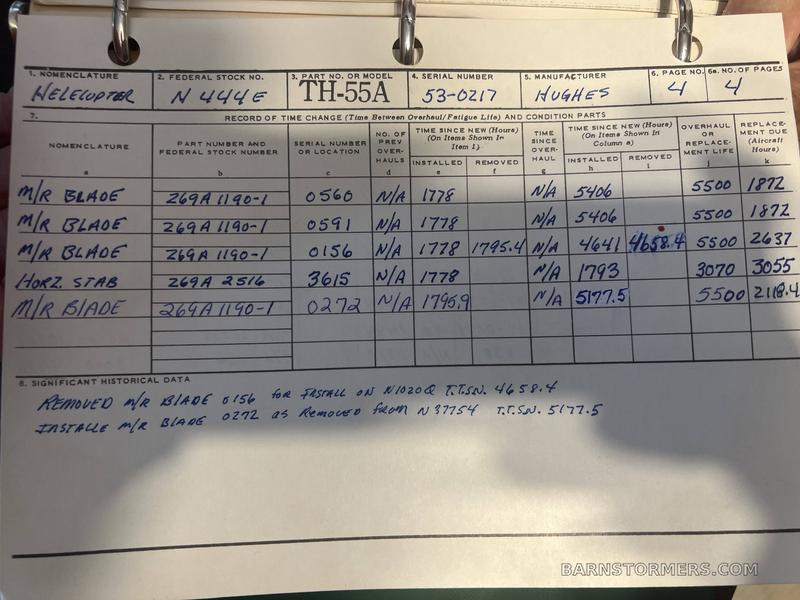 1. NOMENCLATURE 2. FEDERAL STOCK NO. 3. PART NO. OR MODEL 4. SERIAL NUMBER 5. MANUFACTURER 6. PAGE NO. 6a. NO. OF PAGES
HELECOPTER N 444E TH-55A 53-0217 HUGHES 4 4
7. RECORD OF TIME CHANGE (Time Between Overhaul/Fatigue Life) AND CONDITION PARTS
NOMENCLATURE a
PART NUMBER AND FEDERAL STOCK NUMBER b
SERIAL NUMBER OR LOCATION c
NO. OF PREV OVER-HAULS d
TIME SINCE NEW (Hours) (On Items Shown In Item 1)
INSTALLED e REMOVED f
TIME SINCE OVER-HAUL g
TIME SINCE NEW (Hours) (On Items Shown In Column a)
INSTALLED h REMOVED i
OVERHAUL OR REPLACE-MENT LIFE j
REPLACE-MENT DUE (Aircraft Hours) k
M/R BLADE 269A1190-1 0560 N/A 1778 N/A 5406 5500 1872
M/R BLADE 269A1190-1 0591 N/A 1778 N/A 5406 5500 1872
M/R BLADE 269A1190-1 0156 N/A 1778 1795.4 N/A 4641 4658.4 5500 2637
HORZ. STAB 269A 2516 3615 N/A 1778 N/A 1793 3070 3055
M/R BLADE 269A1190-1 0272 N/A 1795.9 N/A 5177.5 5500 2118.4
8. SIGNIFICANT HISTORICAL DATA
REMOVED M/R BLADE 0156 for INSTALL ON N1020Q T.T.SN. 4658.4
INSTALLE M/R BLADE 0272 as Removed from N37754 T.T.SN. 5177.5
BARNSTORMERS.COM